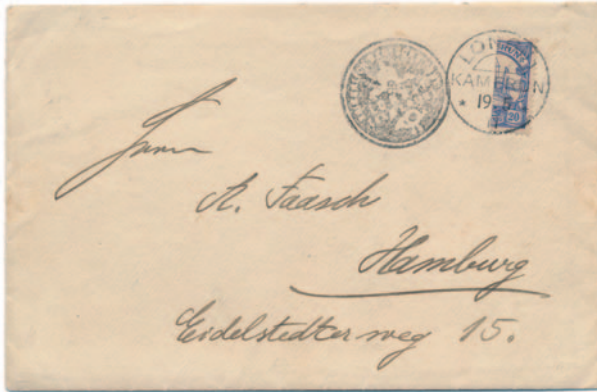 KAMERUN
* 19 5
20
Herrn
A. Faasch
Hamburg
Eidelstedterweg 15.